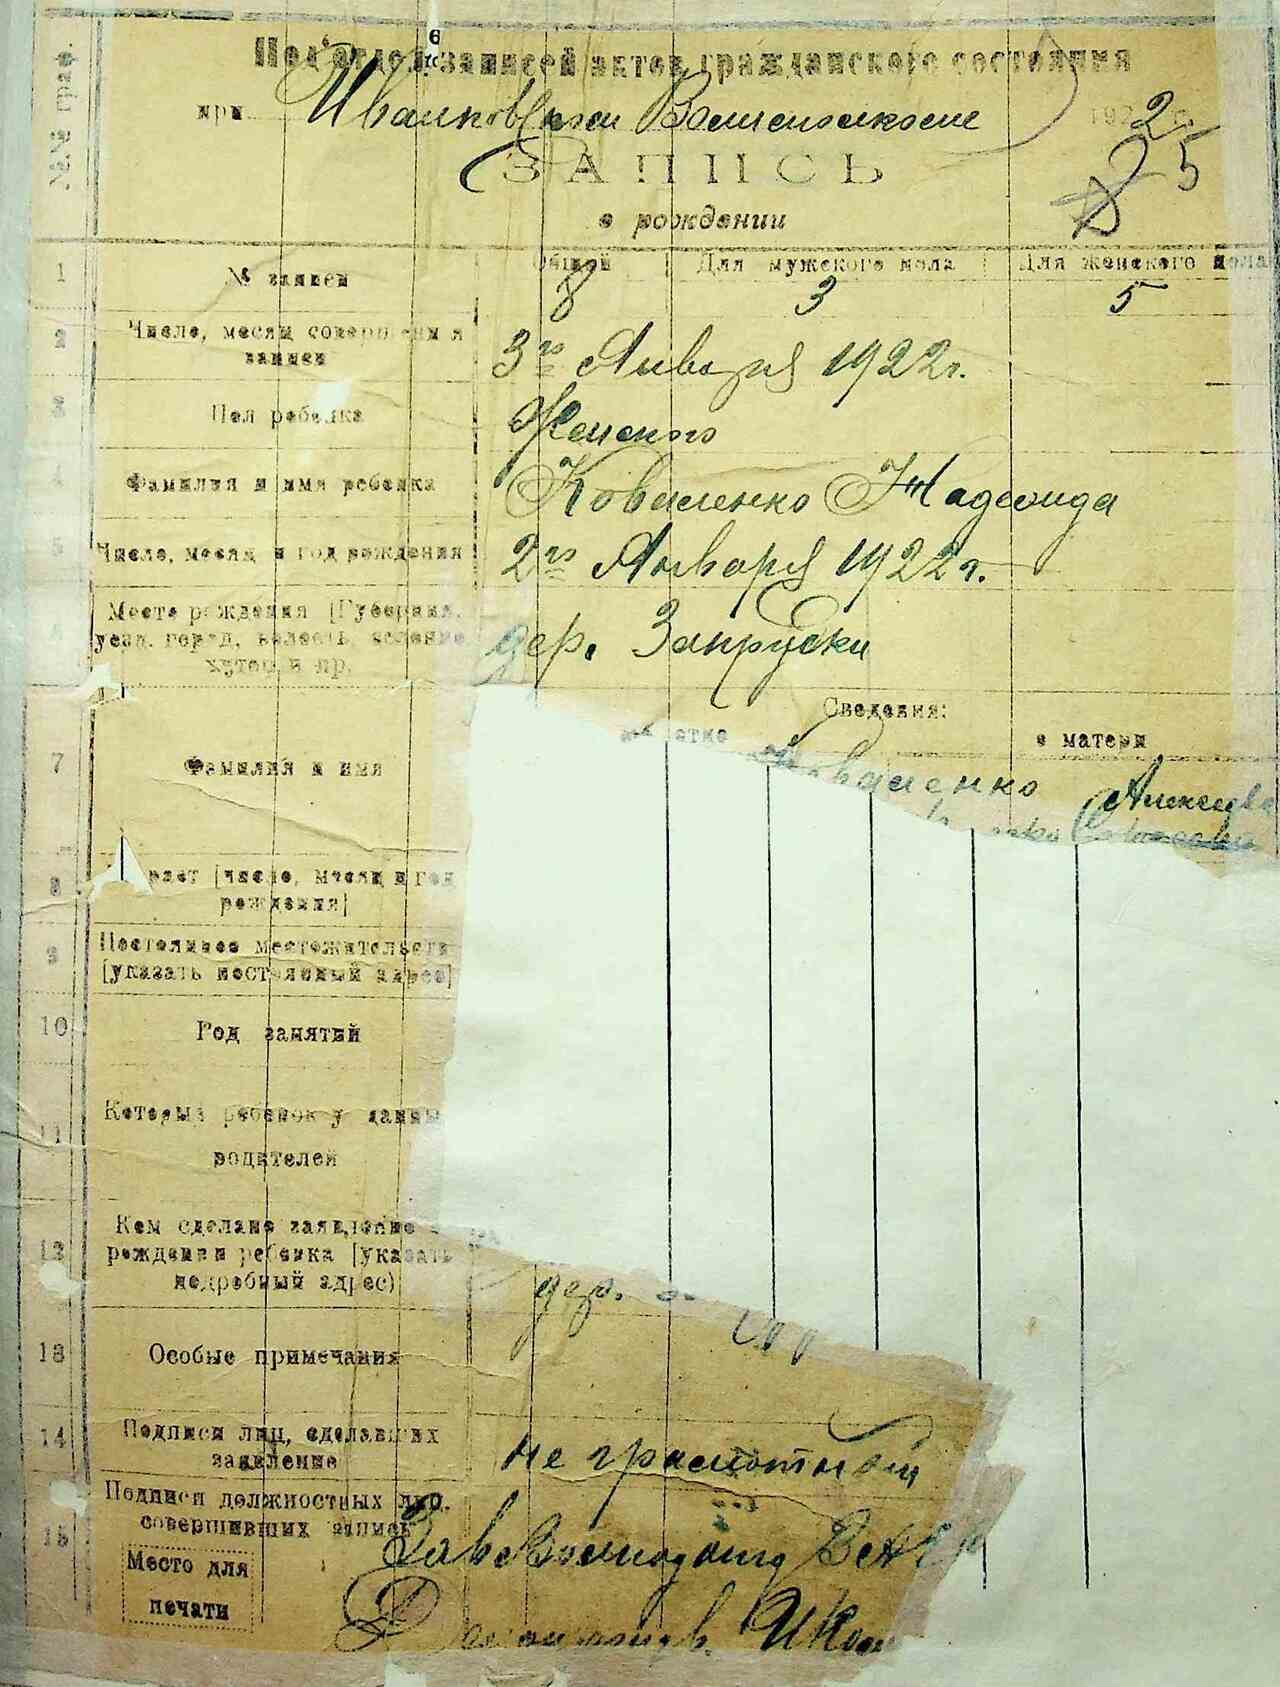 №№ граф.
Под'отдел записей актов гражданского состояния
при 1922 г.
25
ЗАПИСЬ
о рождении
Общий Для мужского пола Для женского пола
1 № записи 8 3 5
2 Число, месяц совершения
записи
3го Января 1922 г.
3 Пол ребенка Женского
4 Фамилия и имя ребенка Коваленко Надежида
5 Число, месяц и год рождения 2го Января 1922 г.
6 Место рождения [Губерния,
уезд, город, волость, селение
хутор и пр.
дер. Запрудки
Сведения:
о матери
7 Фамилия и имя Коваленко
8 [число, месяц и год
рождения]
9 Постоянное местожительство
[указать постоянный адрес]
10 Род занятий
11 Который ребенок у данных
родителей
12 Кем сделано заявление о
рождении ребенка [указать
подробный адрес)
дер.
13 Особые примечания
14 Подписи лиц, сделавших
заявление
не грамотный
15 Подписи должностных лиц,
совершивших запись
Зав
Место для
печати